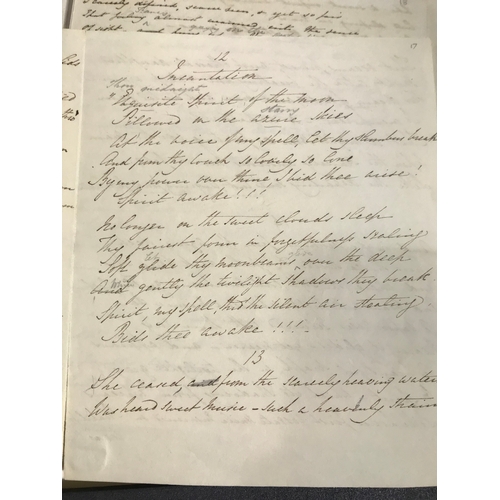 Scarcely defined, scarce born, & yet so fair
That feeling almost
of sight
12
Incantation
Thou midnight
Exquisite Spirit of the Moon
starry
Pillowed on the azure skies
At the voice of my spell, let thy slumbers break
And from thy couch so lovely so lone
By my power over thine I bid thee arise!
Spirit awake!!!
No longer on the sweet clouds sleep
Thy fairest form in forgetfulness sealing
Soft glide thy moonbeams over the deep
And gently the twilight shadows they break
Spirit, my spell, thro the silent air stealing
Bids thee awake!!!
13
She ceased, and from the scarcely heaving water
Was heard sweet music - such a heavenly strain